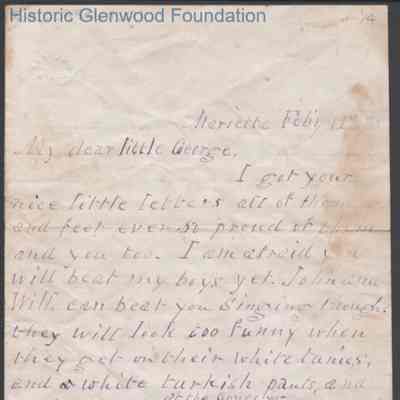 Historic Glenwood Foundation
14
Marietta Feb'y 12th
My dear little George,
I got your
nice little letters all of them
and feel ever so proud of them
and you too. I am afraid you
will beat my boys yet. John and
Will. can beat you singing though.
they will look too funny when
they get on their white tunics,
and a white turkish pants, and
at the